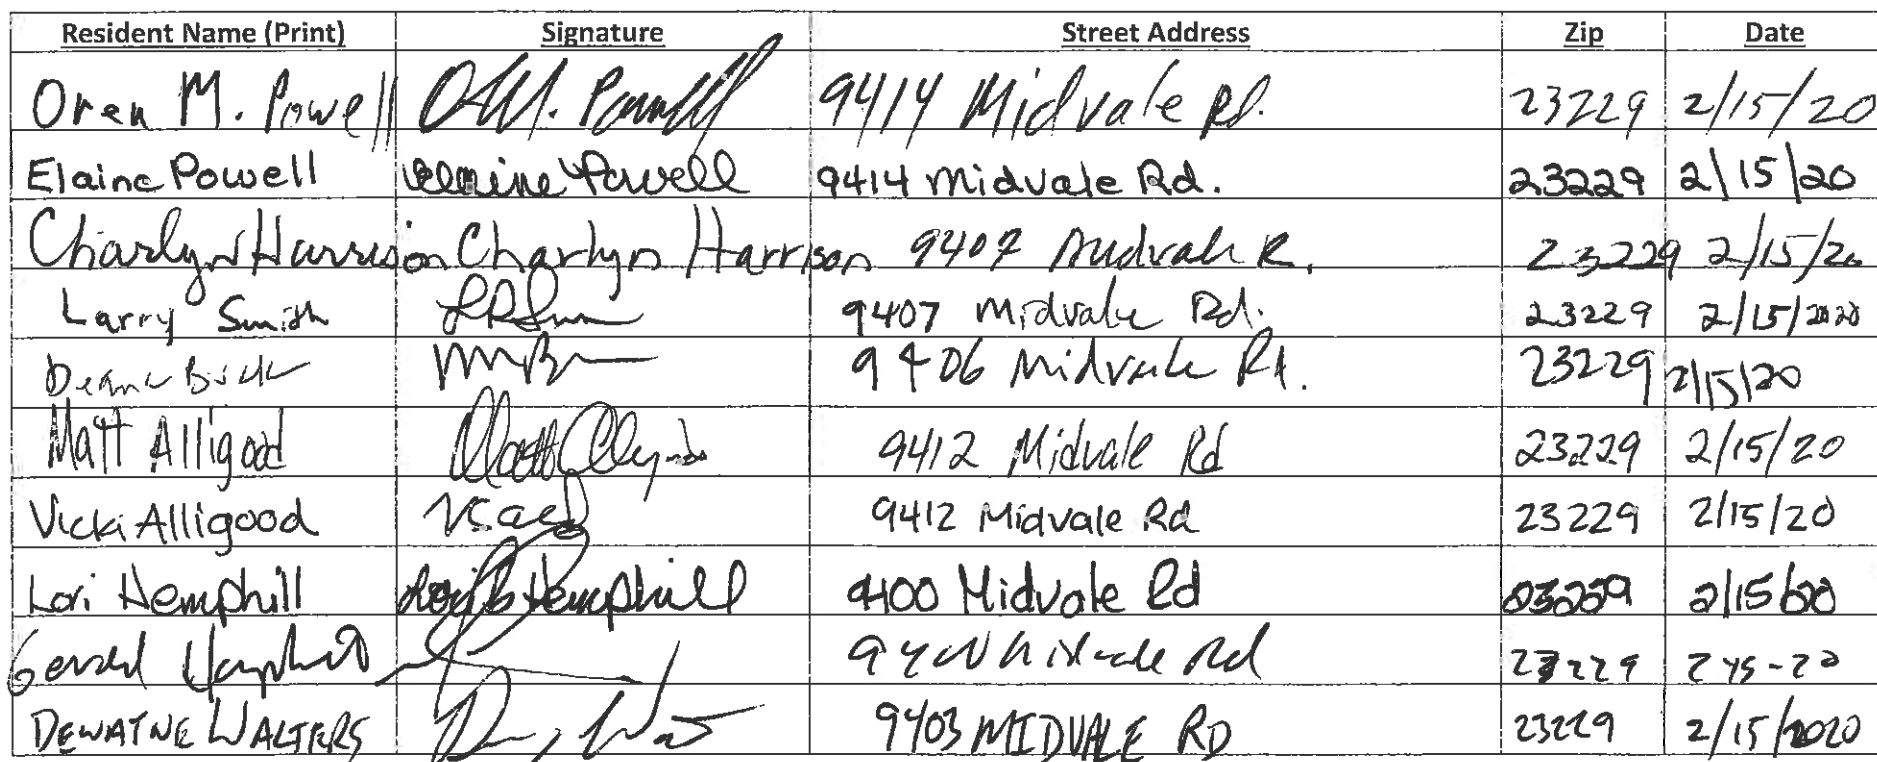 Resident Name (Print) Signature Street Address Zip Date
Oren M. Powell O M. Powell 9414 Midvale Rd. 23229 2/15/20
Elaine Powell Elaine Powell 9414 Midvale Rd. 23229 2/15/20
Charlyn Harrison Charlyn Harrison 9407 Midvale R. 23229 2/15/20
Larry Smith 9407 Midvale Rd. 23229 2/15/2020
9406 Midvale Rd. 23229 2/15/20
Matt Alligood Matt 9412 Midvale Rd 23229 2/15/20
Vicki Alligood 9412 Midvale Rd 23229 2/15/20
Lori Hemphill Lori B Hemphill 9400 Midvale Rd 23229 2/15/20
Hemphill Midvale Rd 23229
DEWAYNE WALTERS 9403 MIDVALE RD 23229 2/15/2020